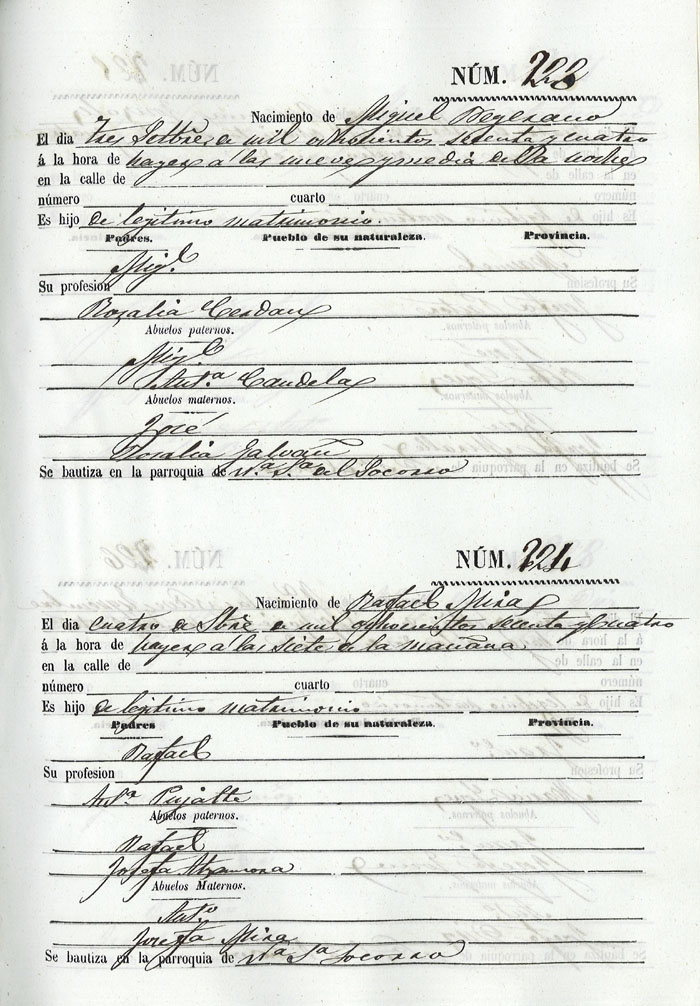 NÚM. 223
Nacimiento de Miguel Begerano
El dia tres Setbre de mil ochocientos sesenta y cuatro
á la hora de hayer a las nueve y media de la noche
en la calle de
número cuarto
Es hijo de legitimo matrimonio.
Padres. Pueblo de su naturaleza. Provincia.
Migl.
Su profesion
Rosalia Cerdan
Abuelos paternos.
Migl
Anta. Candela
Abuelos maternos.
José
Rosalia Galvañ
Se bautiza en la parroquia de Na. Sa. del Socorro
NÚM. 224
Nacimiento de Rafael Mira
El dia cuatro de Sbre de mil ochocientos sesenta y cuatro
á la hora de hayer a las siete de la mañana
en la calle de
número cuarto
Es hijo de legitimo matrimonio
Padres Pueblo de su naturaleza. Provincia.
Rafael
Su profesion
Anta Pujalte
Abuelos paternos.
Rafael
Josefa
Abuelos Maternos.
Anto.
Josefa Mira
Se bautiza en la parroquia de Na Sa Socorro